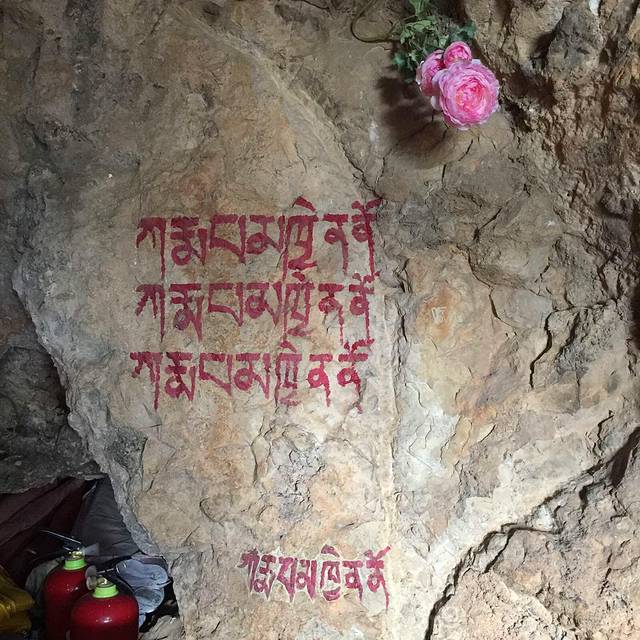 ཀརྨ་པ་མཁྱེན་ནོ
ཀརྨ་པ་མཁྱེན་ནོ
ཀརྨ་པ་མཁྱེན་ནོ
ཀརྨ་པ་མཁྱེན་ནོ